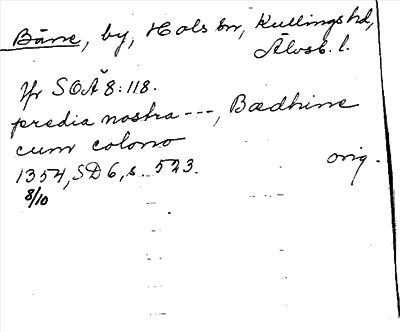 Bäne, by, Hols sn, Kullings hd,
Älvsb. l.
Jfr SOÄ 8:118.
predia nostra ---, Bædhine
cum colono
1354, SD 6, s. 523. orig.
8/10